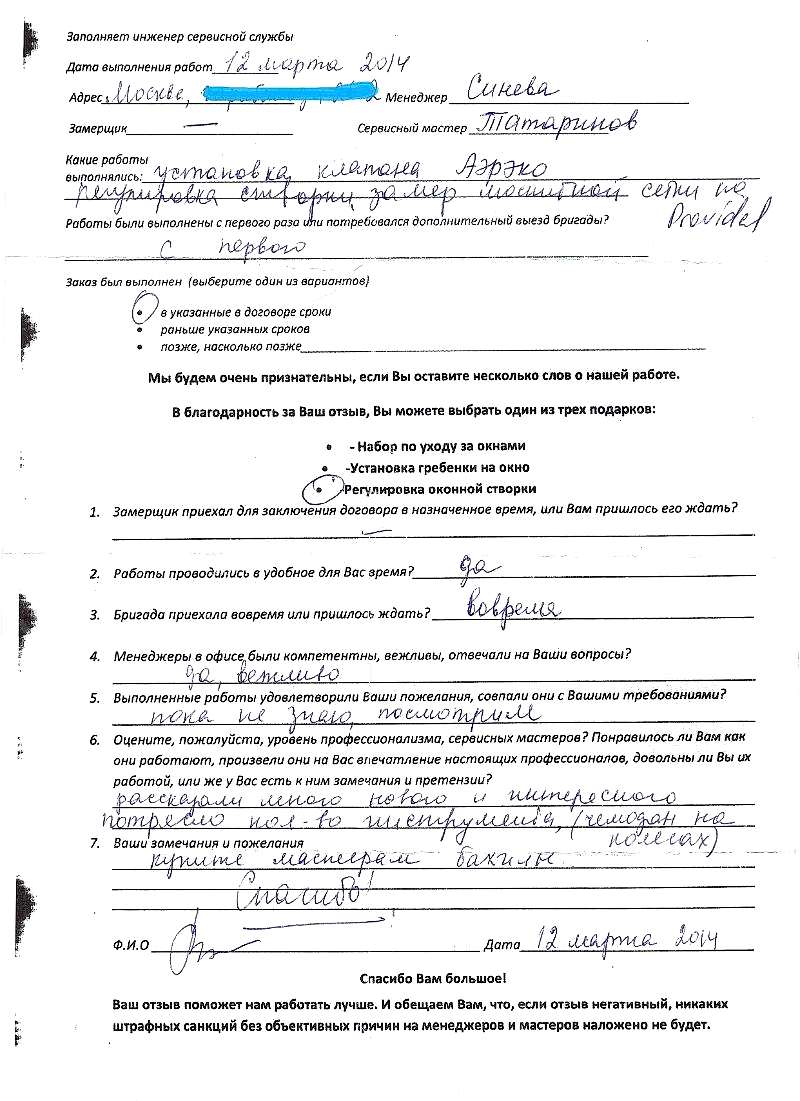 Заполняет инженер сервисной службы
Дата выполнения работ 12 марта 2014
Адрес: Москва, Менеджер Синева
Замерщик — Сервисный мастер Татаринов
Какие работы
выполнялись: установка клапана Аэрэко
регулировка створки, замер москитной сетки на
Providel
Работы были выполнены с первого раза или потребовался дополнительный выезд бригады?
с первого
Заказ был выполнен (выберите один из вариантов)
• в указанные в договоре сроки
• раньше указанных сроков
• позже, насколько позже
Мы будем очень признательны, если Вы оставите несколько слов о нашей работе.
В благодарность за Ваш отзыв, Вы можете выбрать один из трех подарков:
• - Набор по уходу за окнами
• -Установка гребенки на окно
• Регулировка оконной створки
1. Замерщик приехал для заключения договора в назначенное время, или Вам пришлось его ждать?
—
2. Работы проводились в удобное для Вас время? да
3. Бригада приехала вовремя или пришлось ждать? вовремя
4. Менеджеры в офисе были компетентны, вежливы, отвечали на Ваши вопросы?
да, вежливо
5. Выполненные работы удовлетворили Ваши пожелания, совпали они с Вашими требованиями?
пока не знаю, посмотрим
6. Оцените, пожалуйста, уровень профессионализма, сервисных мастеров? Понравилось ли Вам как
они работают, произвели они на Вас впечатление настоящих профессионалов, довольны ли Вы их
работой, или же у Вас есть к ним замечания и претензии?
рассказали много нового и интересного
потрясло кол-во инструмента, (чемодан на
колесах)
7. Ваши замечания и пожелания
купите мастерам бахилы
Спасибо!
Ф.И.О Дата 12 марта 2014
Спасибо Вам большое!
Ваш отзыв поможет нам работать лучше. И обещаем Вам, что, если отзыв негативный, никаких
штрафных санкций без объективных причин на менеджеров и мастеров наложено не будет.